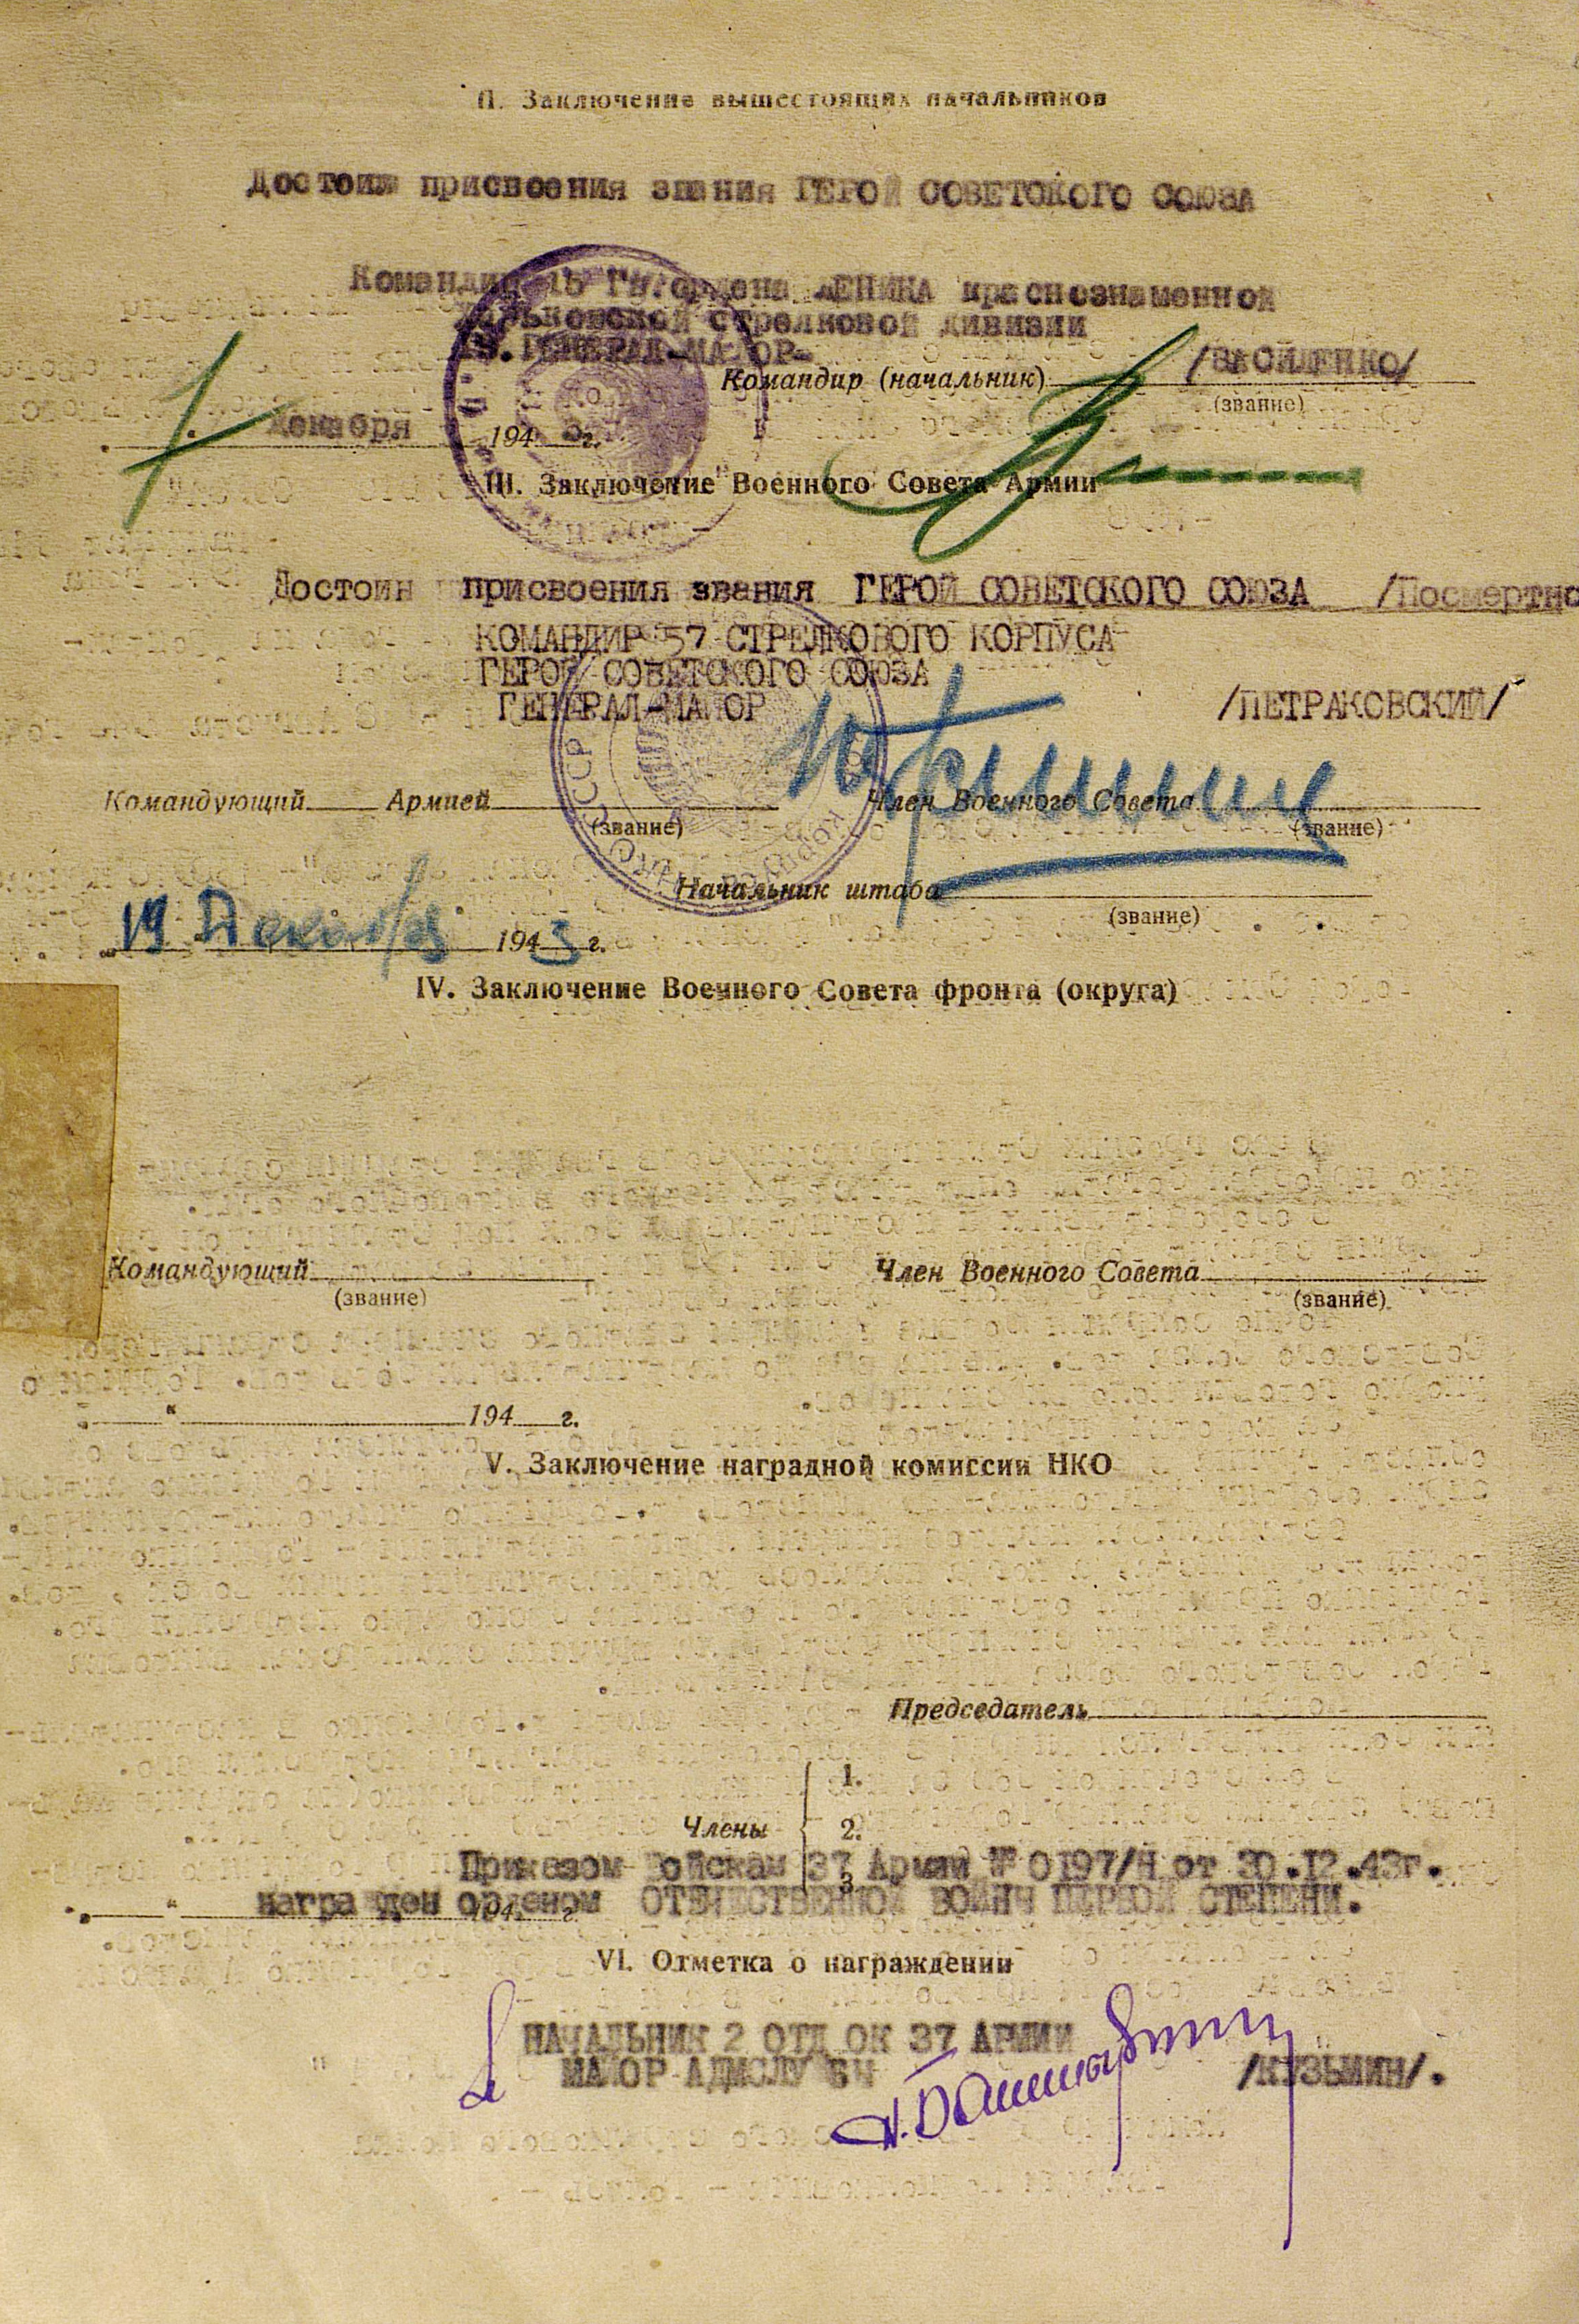 II. Заключение вышестоящих начальников
Достоин присвоения звания ГЕРОЙ СОВЕТСКОГО СОЮЗА
Командир 15 Гв.ордена ЛЕНИНА краснознаменной
Харьковской стрелковой дивизии
Гв.ГЕНЕРАЛ-МАЙОР-
Командир (начальник) /ВАСИЛЕНКО/
(звание)
декабря 1943 г.
III. Заключение Военного Совета Армии
Достоин присвоения звания ГЕРОЙ СОВЕТСКОГО СОЮЗА /Посмертно
КОМАНДИР 57 СТРЕЛКОВОГО КОРПУСА
ГЕРОЙ СОВЕТСКОГО СОЮЗА
ГЕНЕРАЛ-МАЙОР /ПЕТРАКОВСКИЙ/
Командующий Армией Член Военного Совета
(звание) (звание)
Начальник штаба
(звание)
19 Декабря 1943 г.
IV. Заключение Военного Совета фронта (округа)
Командующий Член Военного Совета
(звание) (звание)
" 194 г.
V. Заключение наградной комиссии НКО
Председатель
1.
Члены 2.
3
Приказом Войскам 37 Армии № 0197/Н от 30.12.43г.
награжден орденом ОТЕЧЕСТВЕННОЙ ВОЙНЫ ПЕРВОЙ СТЕПЕНИ.
" 194 г.
VI. Отметка о награждении
НАЧАЛЬНИК 2 ОТД ОК 37 АРМИИ
МАЙОР АДМСЛУЖБЫ /КУЗЬМИН/.